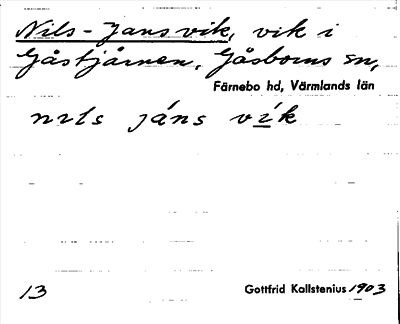 Nils-Jansvik, vik i
Gåstjärnen, Gåsborns sn,
Färnebo hd, Värmlands län
nils jáns vík
13
Gottfrid Kallstenius 1903